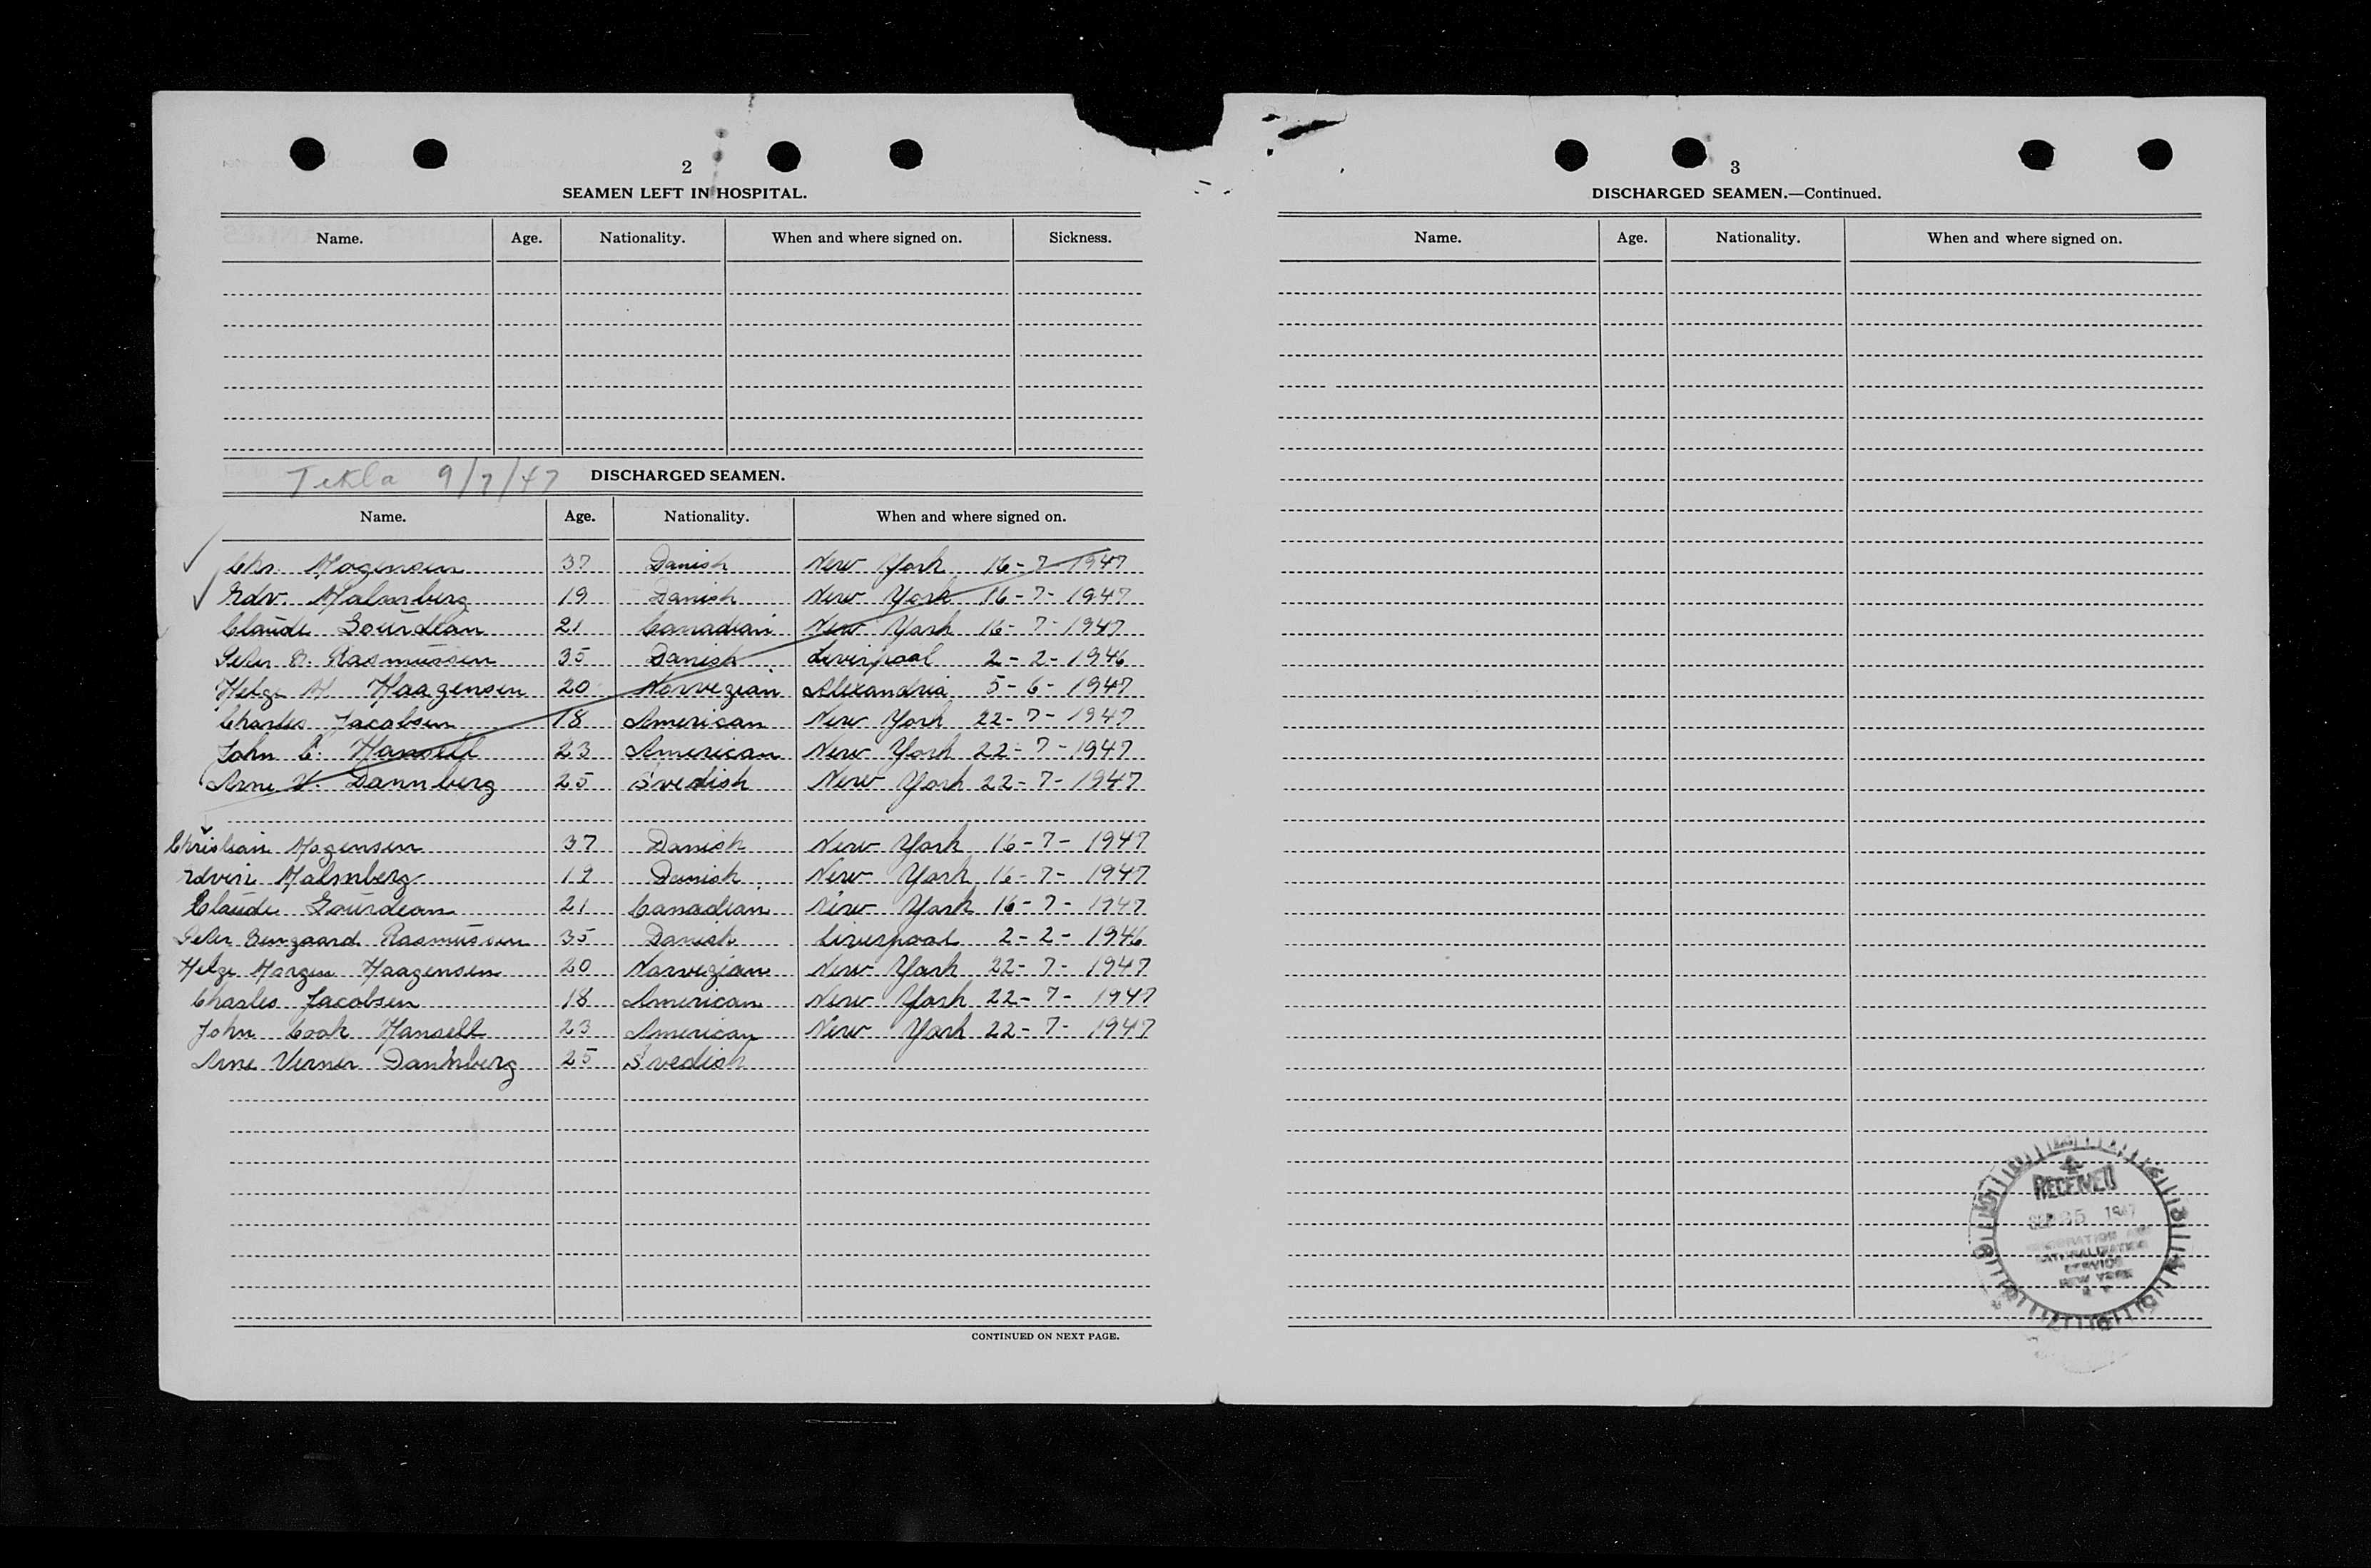 2
SEAMEN LEFT IN HOSPITAL.
Name. Age. Nationality. When and where signed on. Sickness.
Tekla 9/7/47 DISCHARGED SEAMEN.
Name. Age. Nationality. When and where signed on.
Chr. Mogensen 37 Danish New York 16-7-1947
Edv. Malmberg 19 Danish New York 16-7-1947
Claude Gourdeau 21 Canadian New York 16-7-1947
Peter B. Rasmussen 35 Danish Liverpool 2-2-1946
Helge M. Haagensen 20 Norvegian Alexandria 5-6-1947
Charles Jacobsen 18 American New York 22-7-1947
John C. Hansell 23 American New York 22-7-1947
Arne V. Dannberg 25 Svedish New York 22-7-1947
Christian Mogensen 37 Danish New York 16-7-1947
Edvin Malmberg 19 Danish New York 16-7-1947
Claude Gourdeau 21 Canadian New York 16-7-1947
Peter Rasmussen 35 Danish Liverpool 2-2-1946
Helge Haagensen 20 Norvegian New York 22-7-1947
Charles Jacobsen 18 American New York 22-7-1947
John Cook Hansell 23 American New York 22-7-1947
Arne Verner Dannberg 25 Svedish
CONTINUED ON NEXT PAGE.
3
DISCHARGED SEAMEN.—Continued.
Name. Age. Nationality. When and where signed on.
RECEIVED
1947
IMMIGRATION AND
NATURALIZATION
SERVICE
NEW YORK